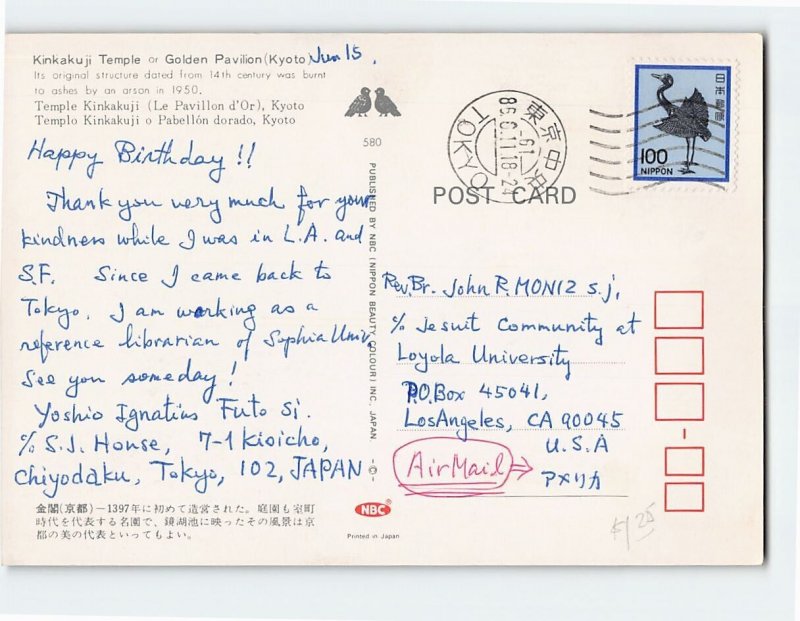 Kinkakuji Temple or Golden Pavilion (Kyoto) Jun 15.
Its original structure dated from 14th century was burnt
to ashes by an arson in 1950.
Temple Kinkakuji (Le Pavillon d'Or), Kyoto
Templo Kinkakuji o Pabellón dorado, Kyoto
580
Happy Birthday!!
Thank you very much for your
kindness while I was in L.A. and
S.F. Since I came back to
Tokyo, I am working as a
reference librarian of Sophia Univ.
See you someday!
Yoshio Ignatius Futo sj.
℅ S.J. House, 7-1 Kioicho,
Chiyodaku, Tokyo, 102, JAPAN
金閣(京都)―1397年に初めて造営された。庭園も室町
時代を代表する名園で、鏡湖池に映ったその風景は京
都の美の代表といってもよい。
PUBLISHED BY NBC (NIPPON BEAUTY COLOUR) INC. JAPAN. -©-
NBC®
Printed in Japan
東京中央
TOKYO
POST CARD
日本郵便
100
NIPPON
Rev. Br. John R. MONIZ s.j,
℅ Jesuit Community at
Loyola University
P.O.Box 45041,
Los Angeles, CA 90045
U.S.A
アメリカ
Air Mail